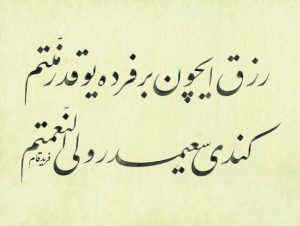 رزق ایچون بر فرده یوقدر منّتم
کندی سعیمدر ولی النّعمتم
فرید قام